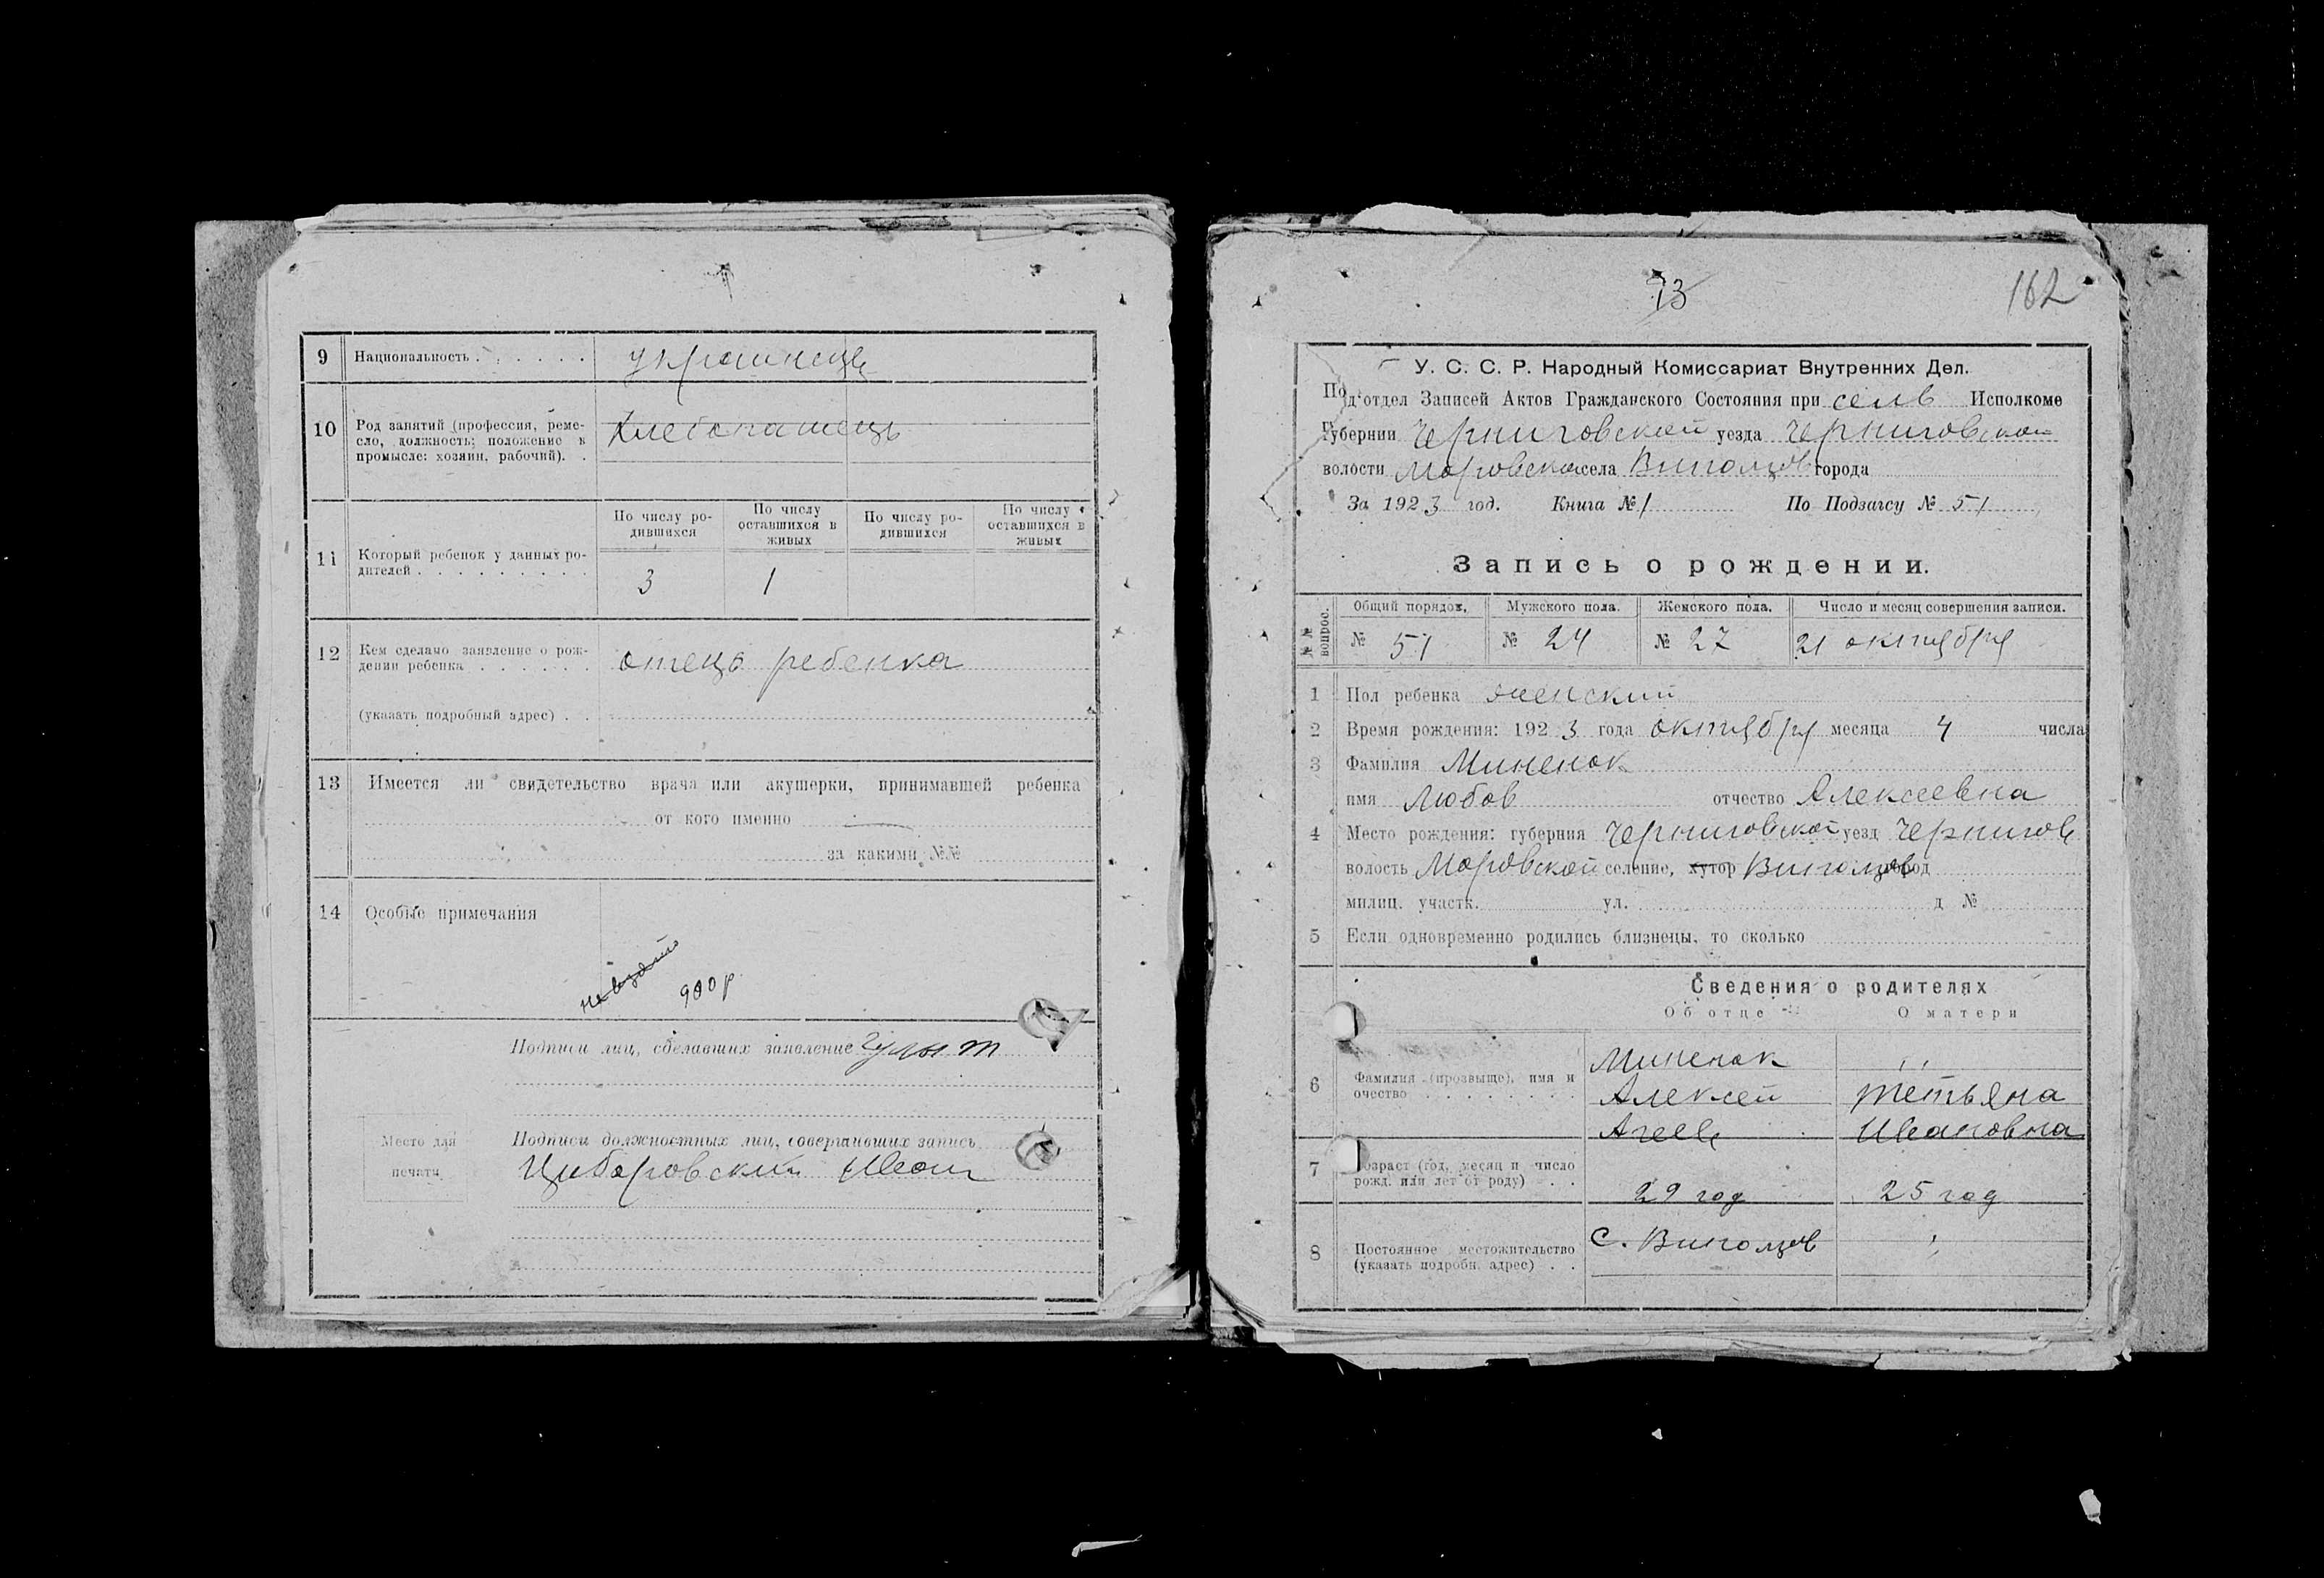 9 Национальность . . . . . . украинець
10 Род занятий (профессия, реме-
сло, должность; положение в
промысле: хозяин, рабочий). .
Хлебопашець
11 Который ребенок у данных ро-
дителей . . . . . . . . . .
По числу ро-
дившихся
По числу
оставшихся в
живых
По числу ро-
дившихся
По числу
оставшихся в
живых
3 1
12 Кем сделано заявление о рож-
дении ребенка . . . . . . отець ребенка
(указать подробный адрес) . .
13 Имеется ли свидетельство врача или акушерки, принимавшей ребенка
от кого именно
за какими №№
14 Особые примечания
900 р
Подписи лиц, сделавших заявление
Место для
печати
Подписи должностных лиц, совершивших запись
Циборовский Иван
13
162
У. С. С. Р. Народный Комиссариат Внутренних Дел.
Под'отдел Записей Актов Гражданского Состояния при сель Исполкоме
Губернии Черниговской уезда Черниговской
волости Моровской села Виползов города
За 1923 год. Книга № 1 По Подзагсу № 51
Запись о рождении.
№№ вопрос.
Общий порядок. Мужского пола. Женского пола. Число и месяц совершения записи.
№ 51 № 24 № 27 21 октября
1 Пол ребенка женский
2 Время рождения: 1923 года октября месяца 4 числа
3 Фамилия Миненок
имя Любов отчество Алексеевна
4 Место рождения: губерния Черниговской уезд Чернигов
волость Моровской селение, хутор Виползов город
милиц. участк. ул. д №
5 Если одновременно родились близнецы, то сколько
Сведения о родителях
Об отце О матери
6 Фамилия (прозвище), имя и
очество . . . . . . . .
Миненок ,,
Алексей Тетьяна
Агеев Ивановна
7 Возраст (год, месяц и число
рожд. или лет от роду) . .
29 год 25 год
8 Постоянное местожительство
(указать подробн. адрес) . .
с. Виползов ,,